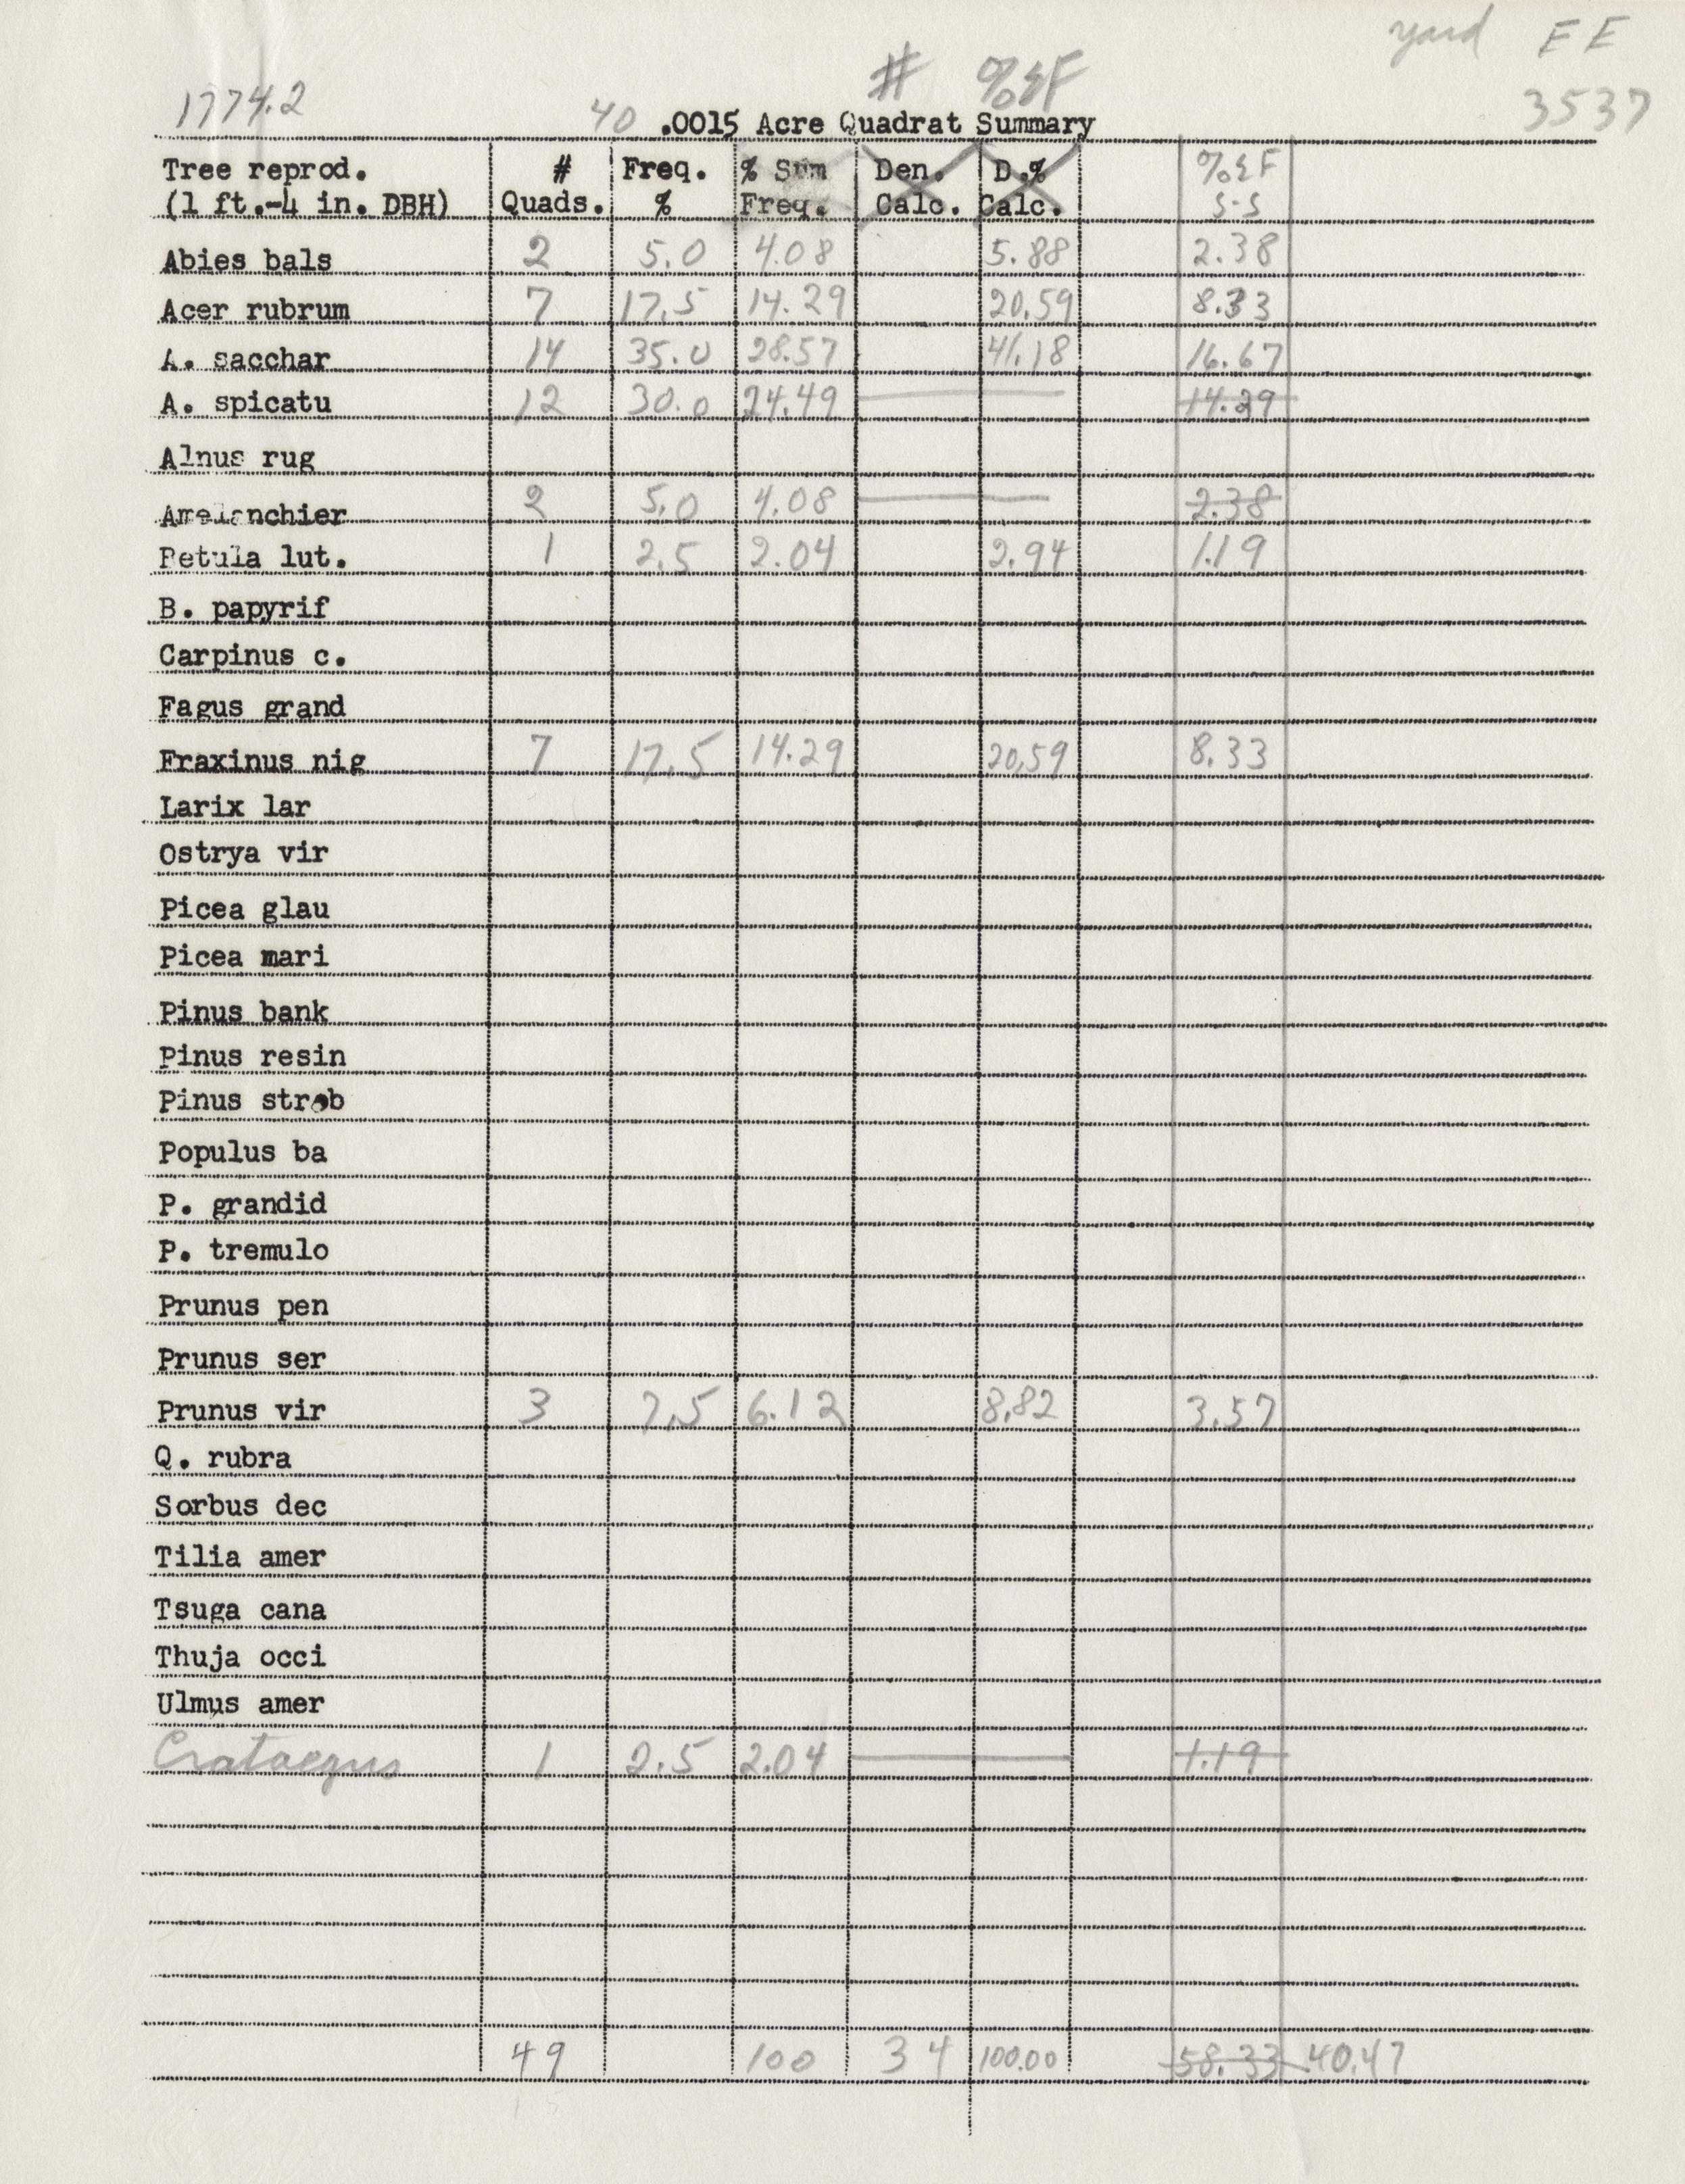 yard EE
# %ΣF
1774.2 3537
40 .0015 Acre Quadrat Summary
Tree reprod. # Freq. % Sum Den. D.% %ΣF
(1 ft.-4 in. DBH) Quads. % Freq. Calc. Calc. S-S
Abies bals 2 5.0 4.08 5.88 2.38
Acer rubrum 7 17.5 14.29 20.59 8.33
A. sacchar 14 35.0 28.57 41.18 16.67
A. spicatu 12 30.0 24.49 14.29
Alnus rug
Amelanchier 2 5.0 4.08 2.38
Betula lut. 1 2.5 2.04 2.94 1.19
B. papyrif
Carpinus c.
Fagus grand
Fraxinus nig 7 17.5 14.29 20.59 8.33
Larix lar
Ostrya vir
Picea glau
Picea mari
Pinus bank
Pinus resin
Pinus strob
Populus ba
P. grandid
P. tremulo
Prunus pen
Prunus ser
Prunus vir 3 7.5 6.12 8.82 3.57
Q. rubra
Sorbus dec
Tilia amer
Tsuga cana
Thuja occi
Ulmus amer
Crataegus 1 2.5 2.04 1.19
49 100 34 100.00 58.33 40.47